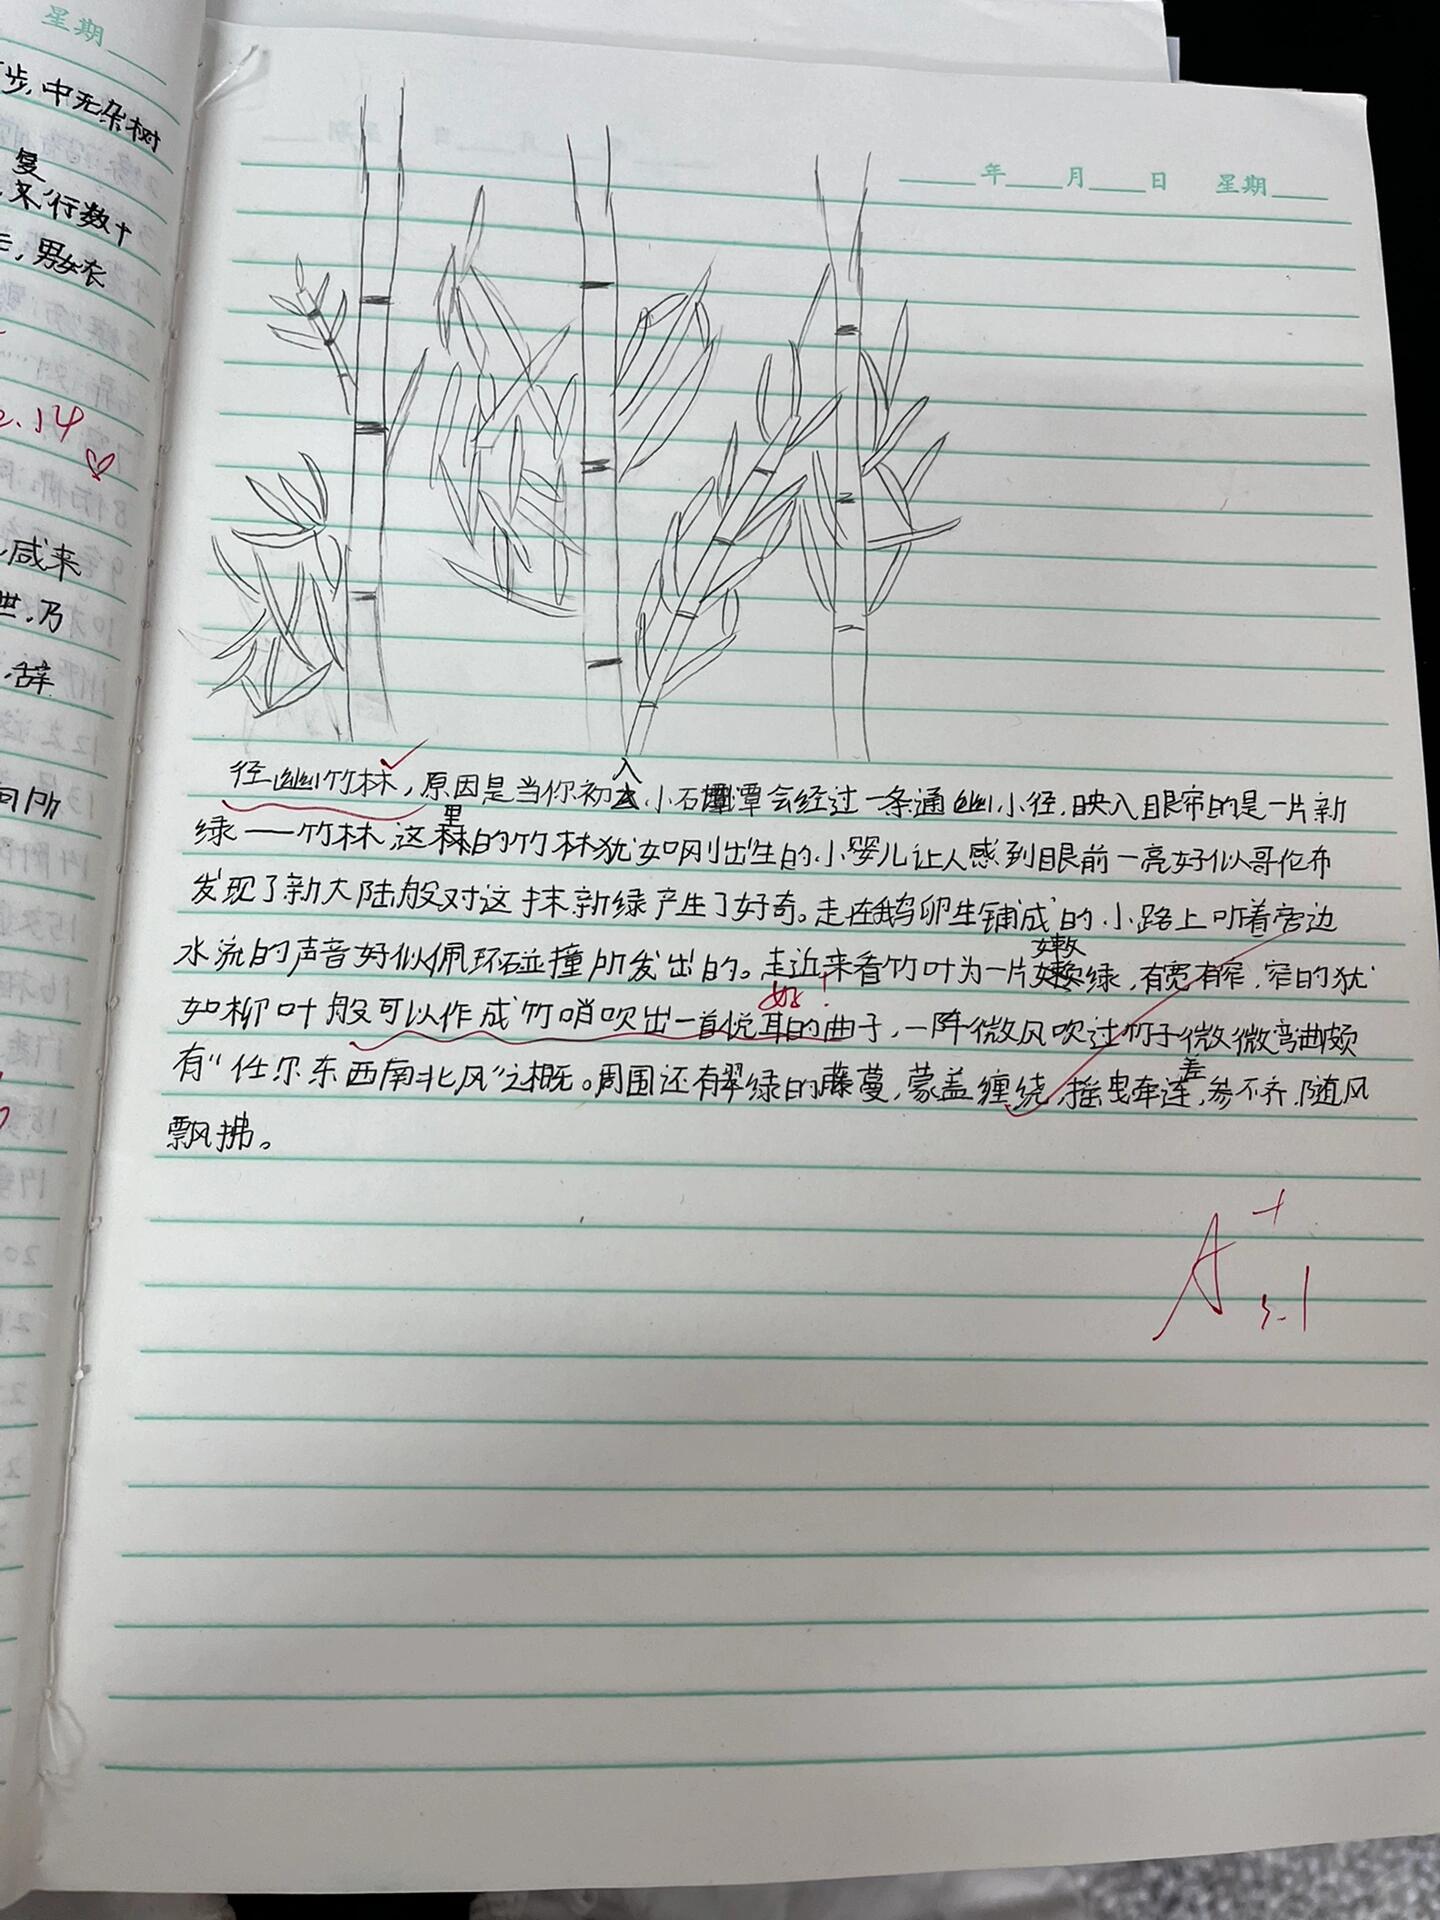 星期
步,中无杂树
复
行数十
男女衣
.14
咸来
世,乃
辞
向所
年 月 日 星期
径幽竹林,原因是当你初入小石潭会经过一条通幽小径,映入眼帘的是一片新
绿——竹林,这里的竹林犹如刚出生的小婴儿让人感到眼前一亮好似哥伦布
发现了新大陆般对这抹新绿产生了好奇。走在鹅卵生铺成的小路上听着旁边
水流的声音好似佩环碰撞所发出的。走近来看竹叶为一片嫩绿,有宽有窄,窄的犹
好!
如柳叶般可以作成竹哨吹出一首悦耳的曲子,一阵微风吹过竹子微微弯曲颇
有“任尔东西南北风”之概。周围还有翠绿的藤蔓,蒙盖缠绕,摇曳牵连,参差不齐,随风
飘拂。
A+
3.1